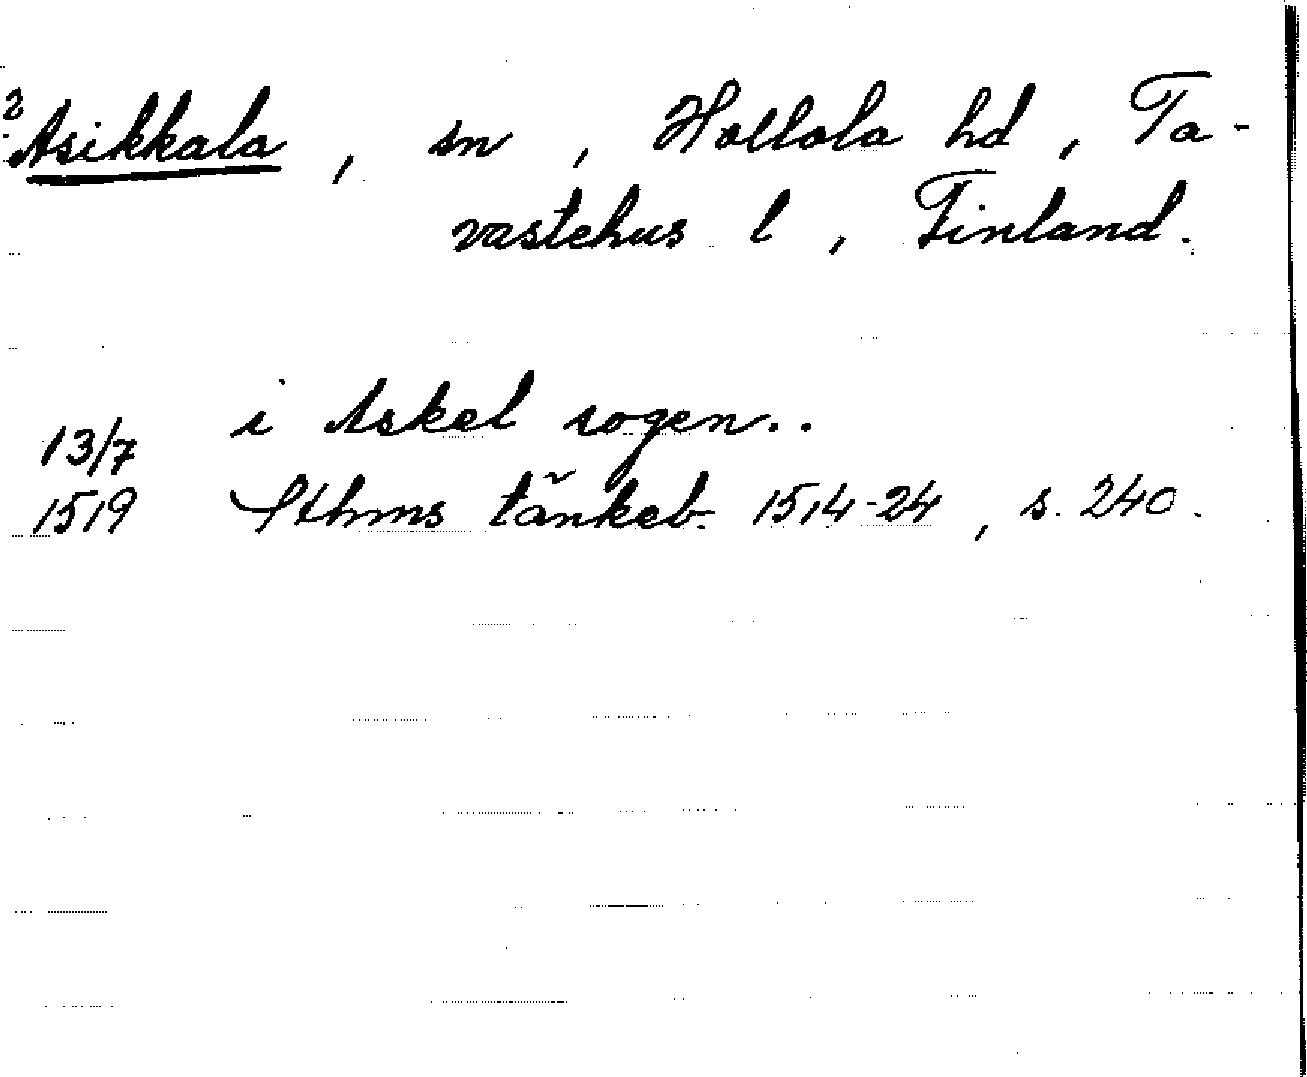 ? Asikkala, sn, Hollola hd, Ta-
vastehus l, Finland.
i Askel sogen..
13/7
1519 Sthms tänkeb. 1514-24, s. 240.